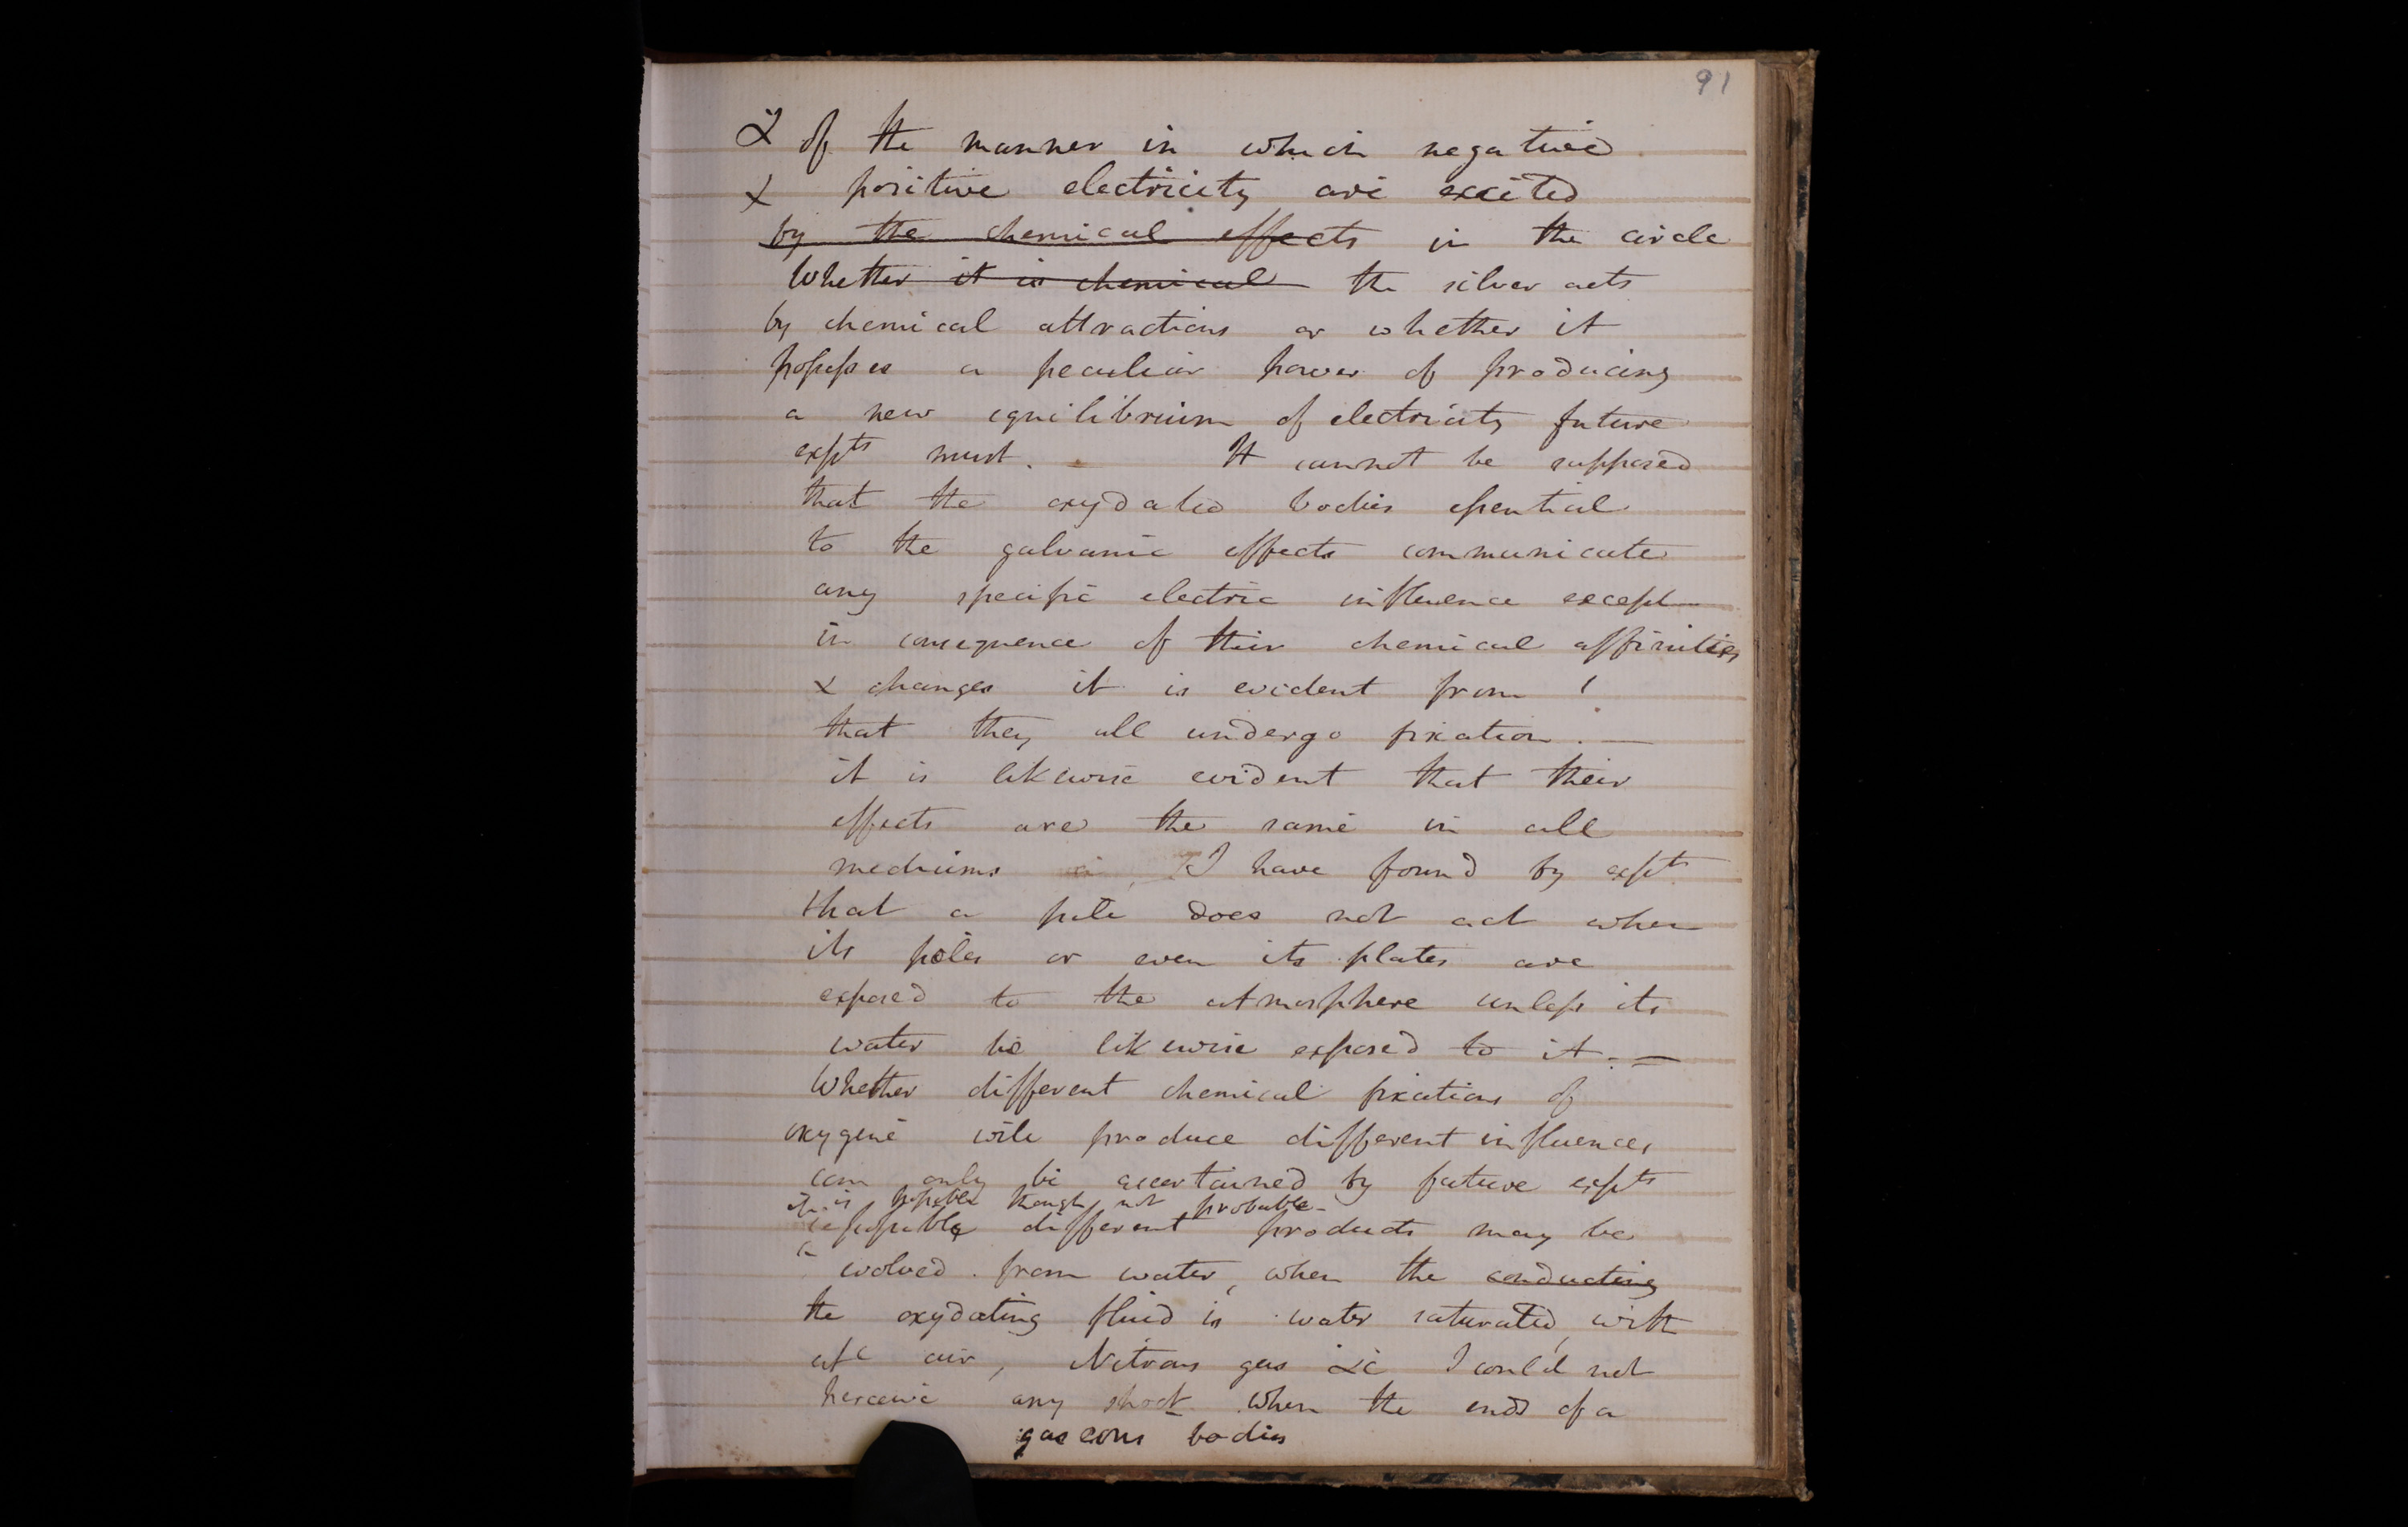 91
& of the manner in which negative
& positive electricity are excited
by the chemical effects in the circle
Whether it is chemical the silver acts
by chemical attractions or whether it
possesses a peculiar power of producing
a new equilibrium of electricity future
expts must. — It cannot be supposed
that the oxydated bodies essential
to the galvanic effects communicate
any specific electric influence except
in consequence of their chemical affinities
& changes it is evident from !
that they all undergo fixation. —
it is likewise evident that their
effects are the same in all
mediums I have found by expts
that a pile does not act when
its poles or even its plates are
exposed to the atmosphere unless its
water be likewise exposed to it. —
Whether different chemical fixations of
oxygene will produce different influences
can only be ascertained by future expts
it is possible though not probable
possible different products may be
evolved from water, when the conducting
the oxydating fluid is water saturated with
atc air, Nitrous gas &c I could not
perceive any shock when the ends of a
gaseous bodies